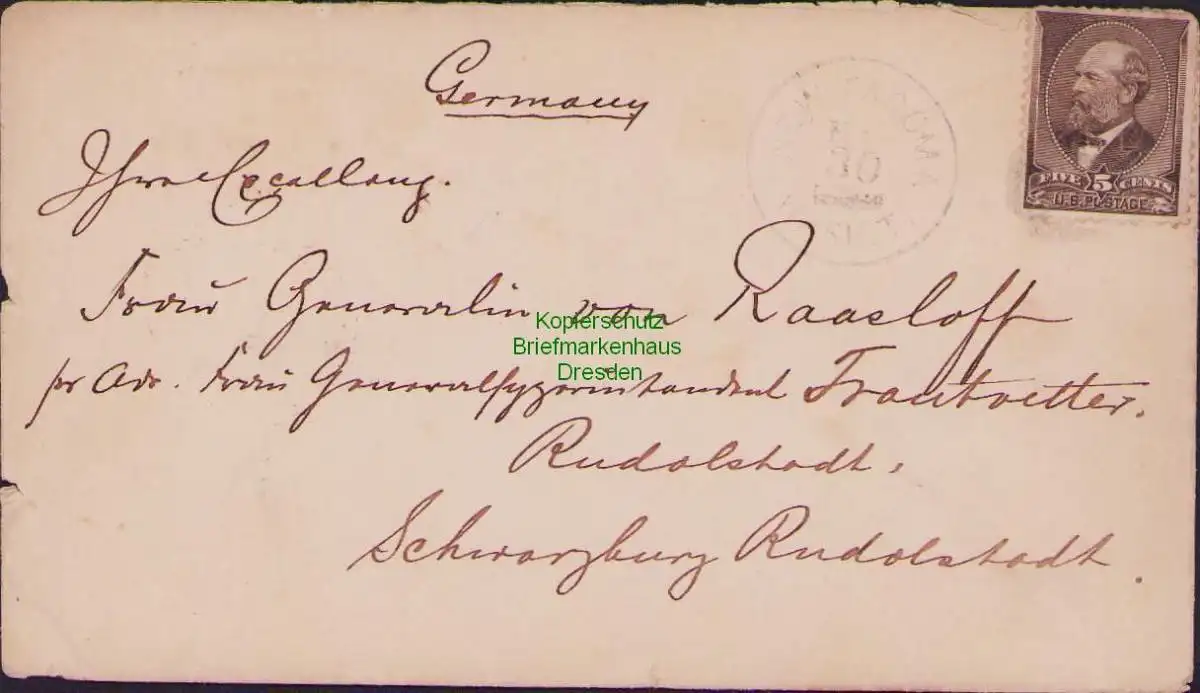 Germany
Ihre Excellenz.
Frau Generalin von Raasloff
pr Adr. Frau Generalsuperintendent Trautvetter.
Rudolstadt.
Schwarzburg Rudolstadt
30
FIVE 5 CENTS
U.S. POSTAGE
Kopierschutz
Briefmarkenhaus
Dresden